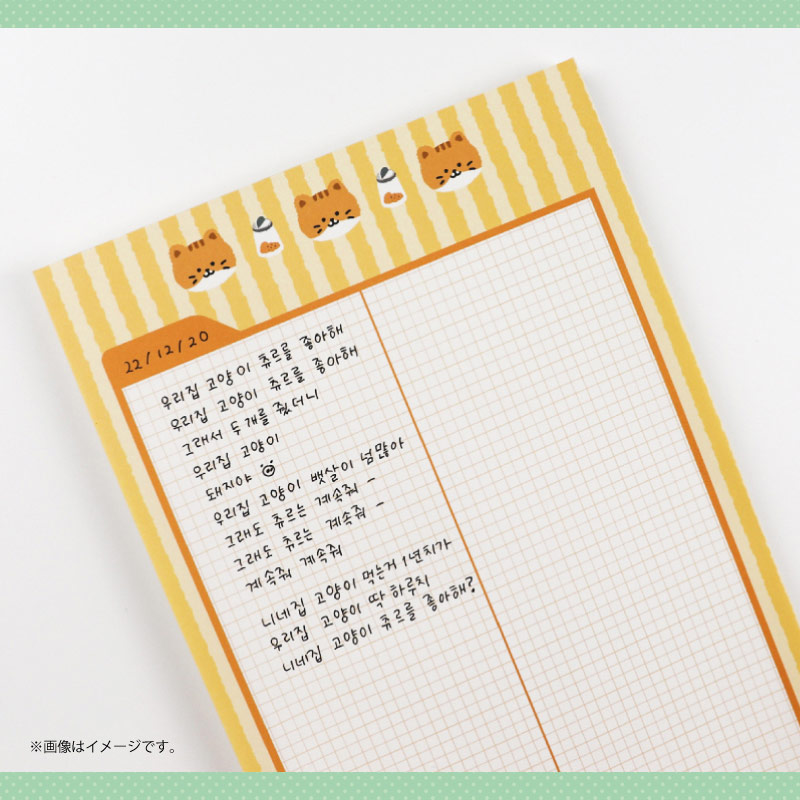 22/12/20
우리집 고양이 츄르를 좋아해
우리집 고양이 츄르를 좋아해
그래서 두개를 줬더니
우리집 고양이
돼지야
우리집 고양이 뱃살이 넘많아
그래도 츄르는 계속줘 -
그래도 츄르는 계속줘 -
계속줘 계속줘
니네집 고양이 먹는거 1년치가
우리집 고양이 딱 하루치
니네집 고양이 츄르를 좋아해?
※画像はイメージです。